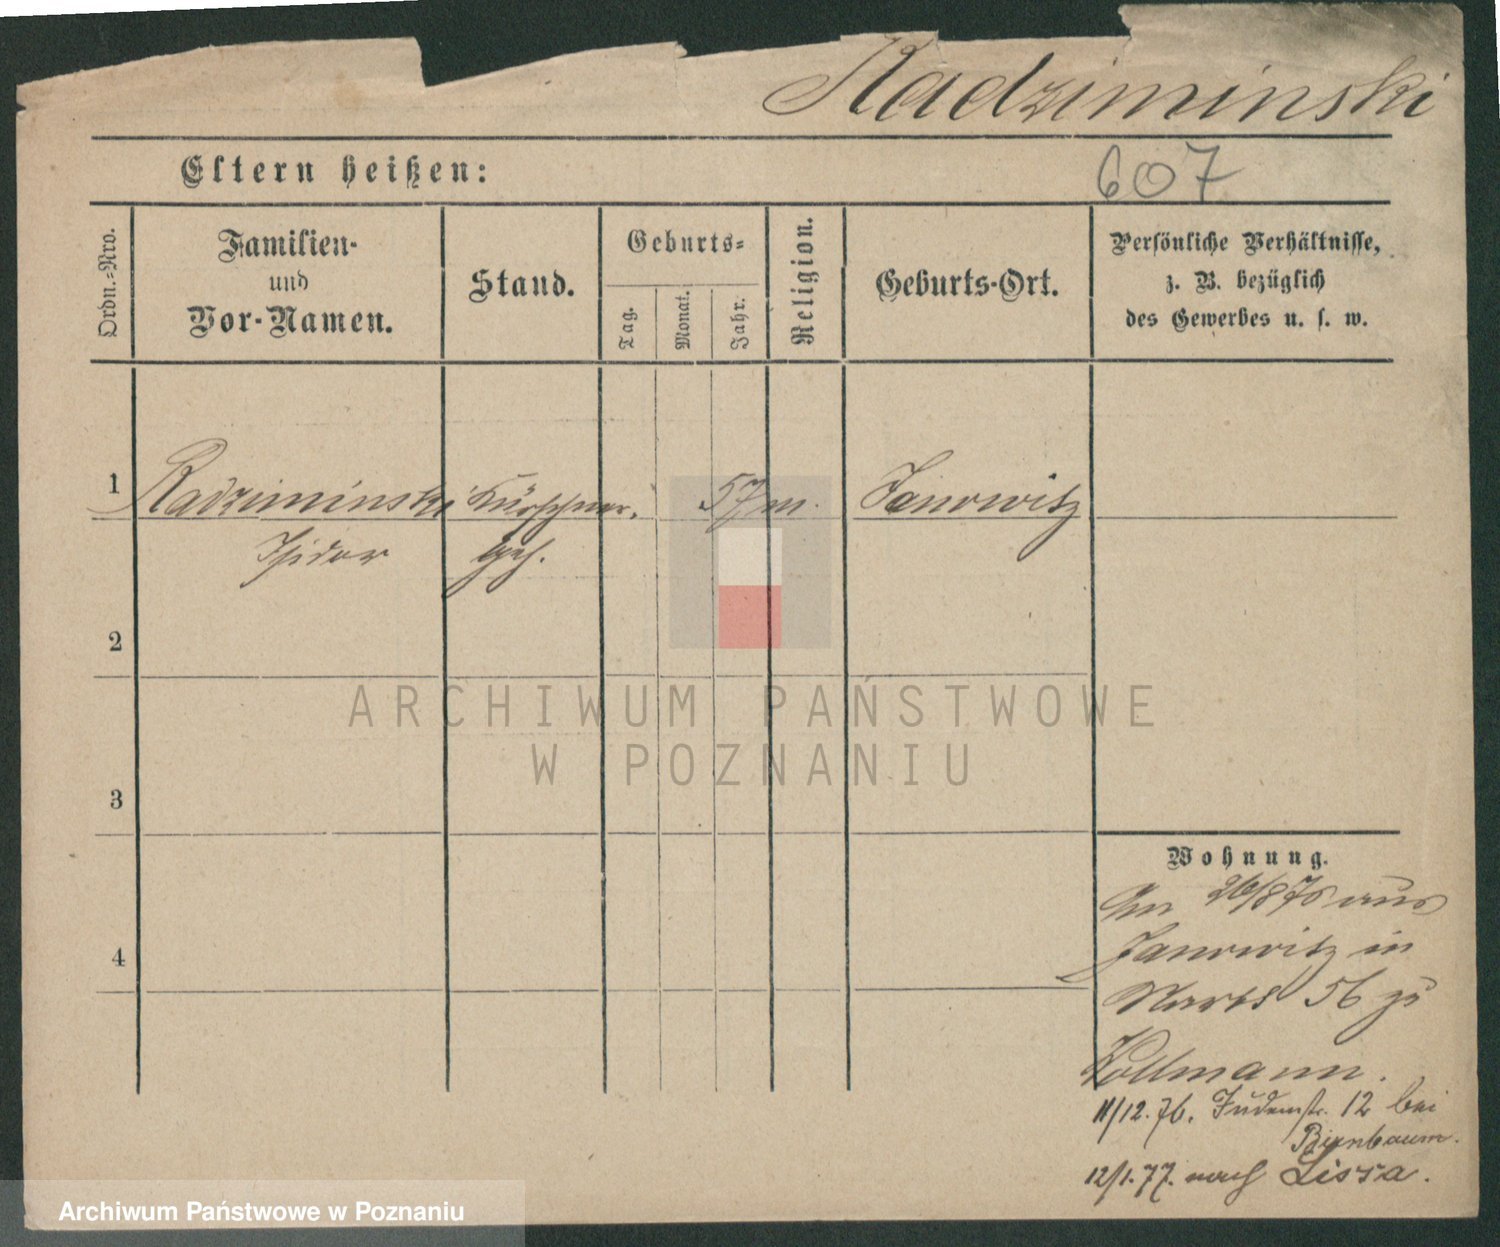 Radziminski
Eltern heißen:
607
Ordn.-Nro.
Familien-
und
Vor-Namen.
Stand.
Geburts-
Tag.
Monat.
Jahr.
Religion.
Geburts-Ort.
Persönliche Verhältnisse,
z. B. bezüglich
des Gewerbes u. s. w.
1
Radziminski Kürschner. 57 m. Janowitz
Isidor geh.
2
3
4
Wohnung.
Am 26/8 76 aus
Janowitz in
Markt 56 zu
Kollmann.
11/12. 76. Judenstr. 12 bei
Birnbaum.
12/1. 77. nach Lissa.
ARCHIWUM PAŃSTWOWE
W POZNANIU
Archiwum Państwowe w Poznaniu